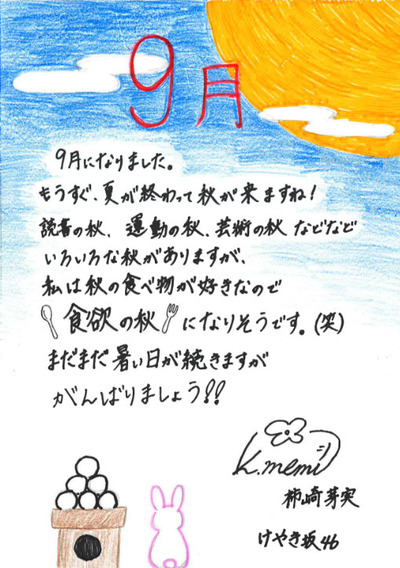 9月
9月になりました。
もうすぐ、夏が終わって秋が来ますね!
読書の秋、運動の秋、芸術の秋 などなど
いろいろな秋がありますが、
私は秋の食べ物が好きなので
食欲の秋になりそうです。(笑)
まだまだ暑い日が続きますが
がんばりましょう!!
K.memi
柿崎芽実
けやき坂46